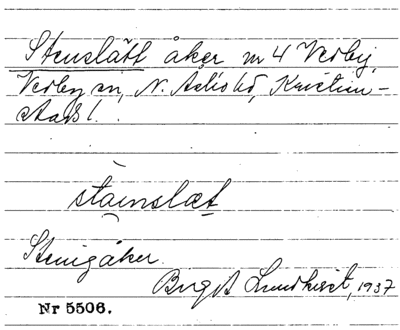 Stenslätt åker nr 4 Verby,
Verby sn, N. Åsbo hd, Kristian-
stads l.
stainslæt
Stenig åker.
Birgit Lundkvist, 1937
Nr 5506.